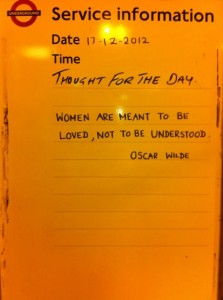 UNDERGROUND
Service information
Date 17-12-2012
Time
THOUGHT FOR THE DAY.
WOMEN ARE MEANT TO BE
LOVED, NOT TO BE UNDERSTOOD.
OSCAR WILDE